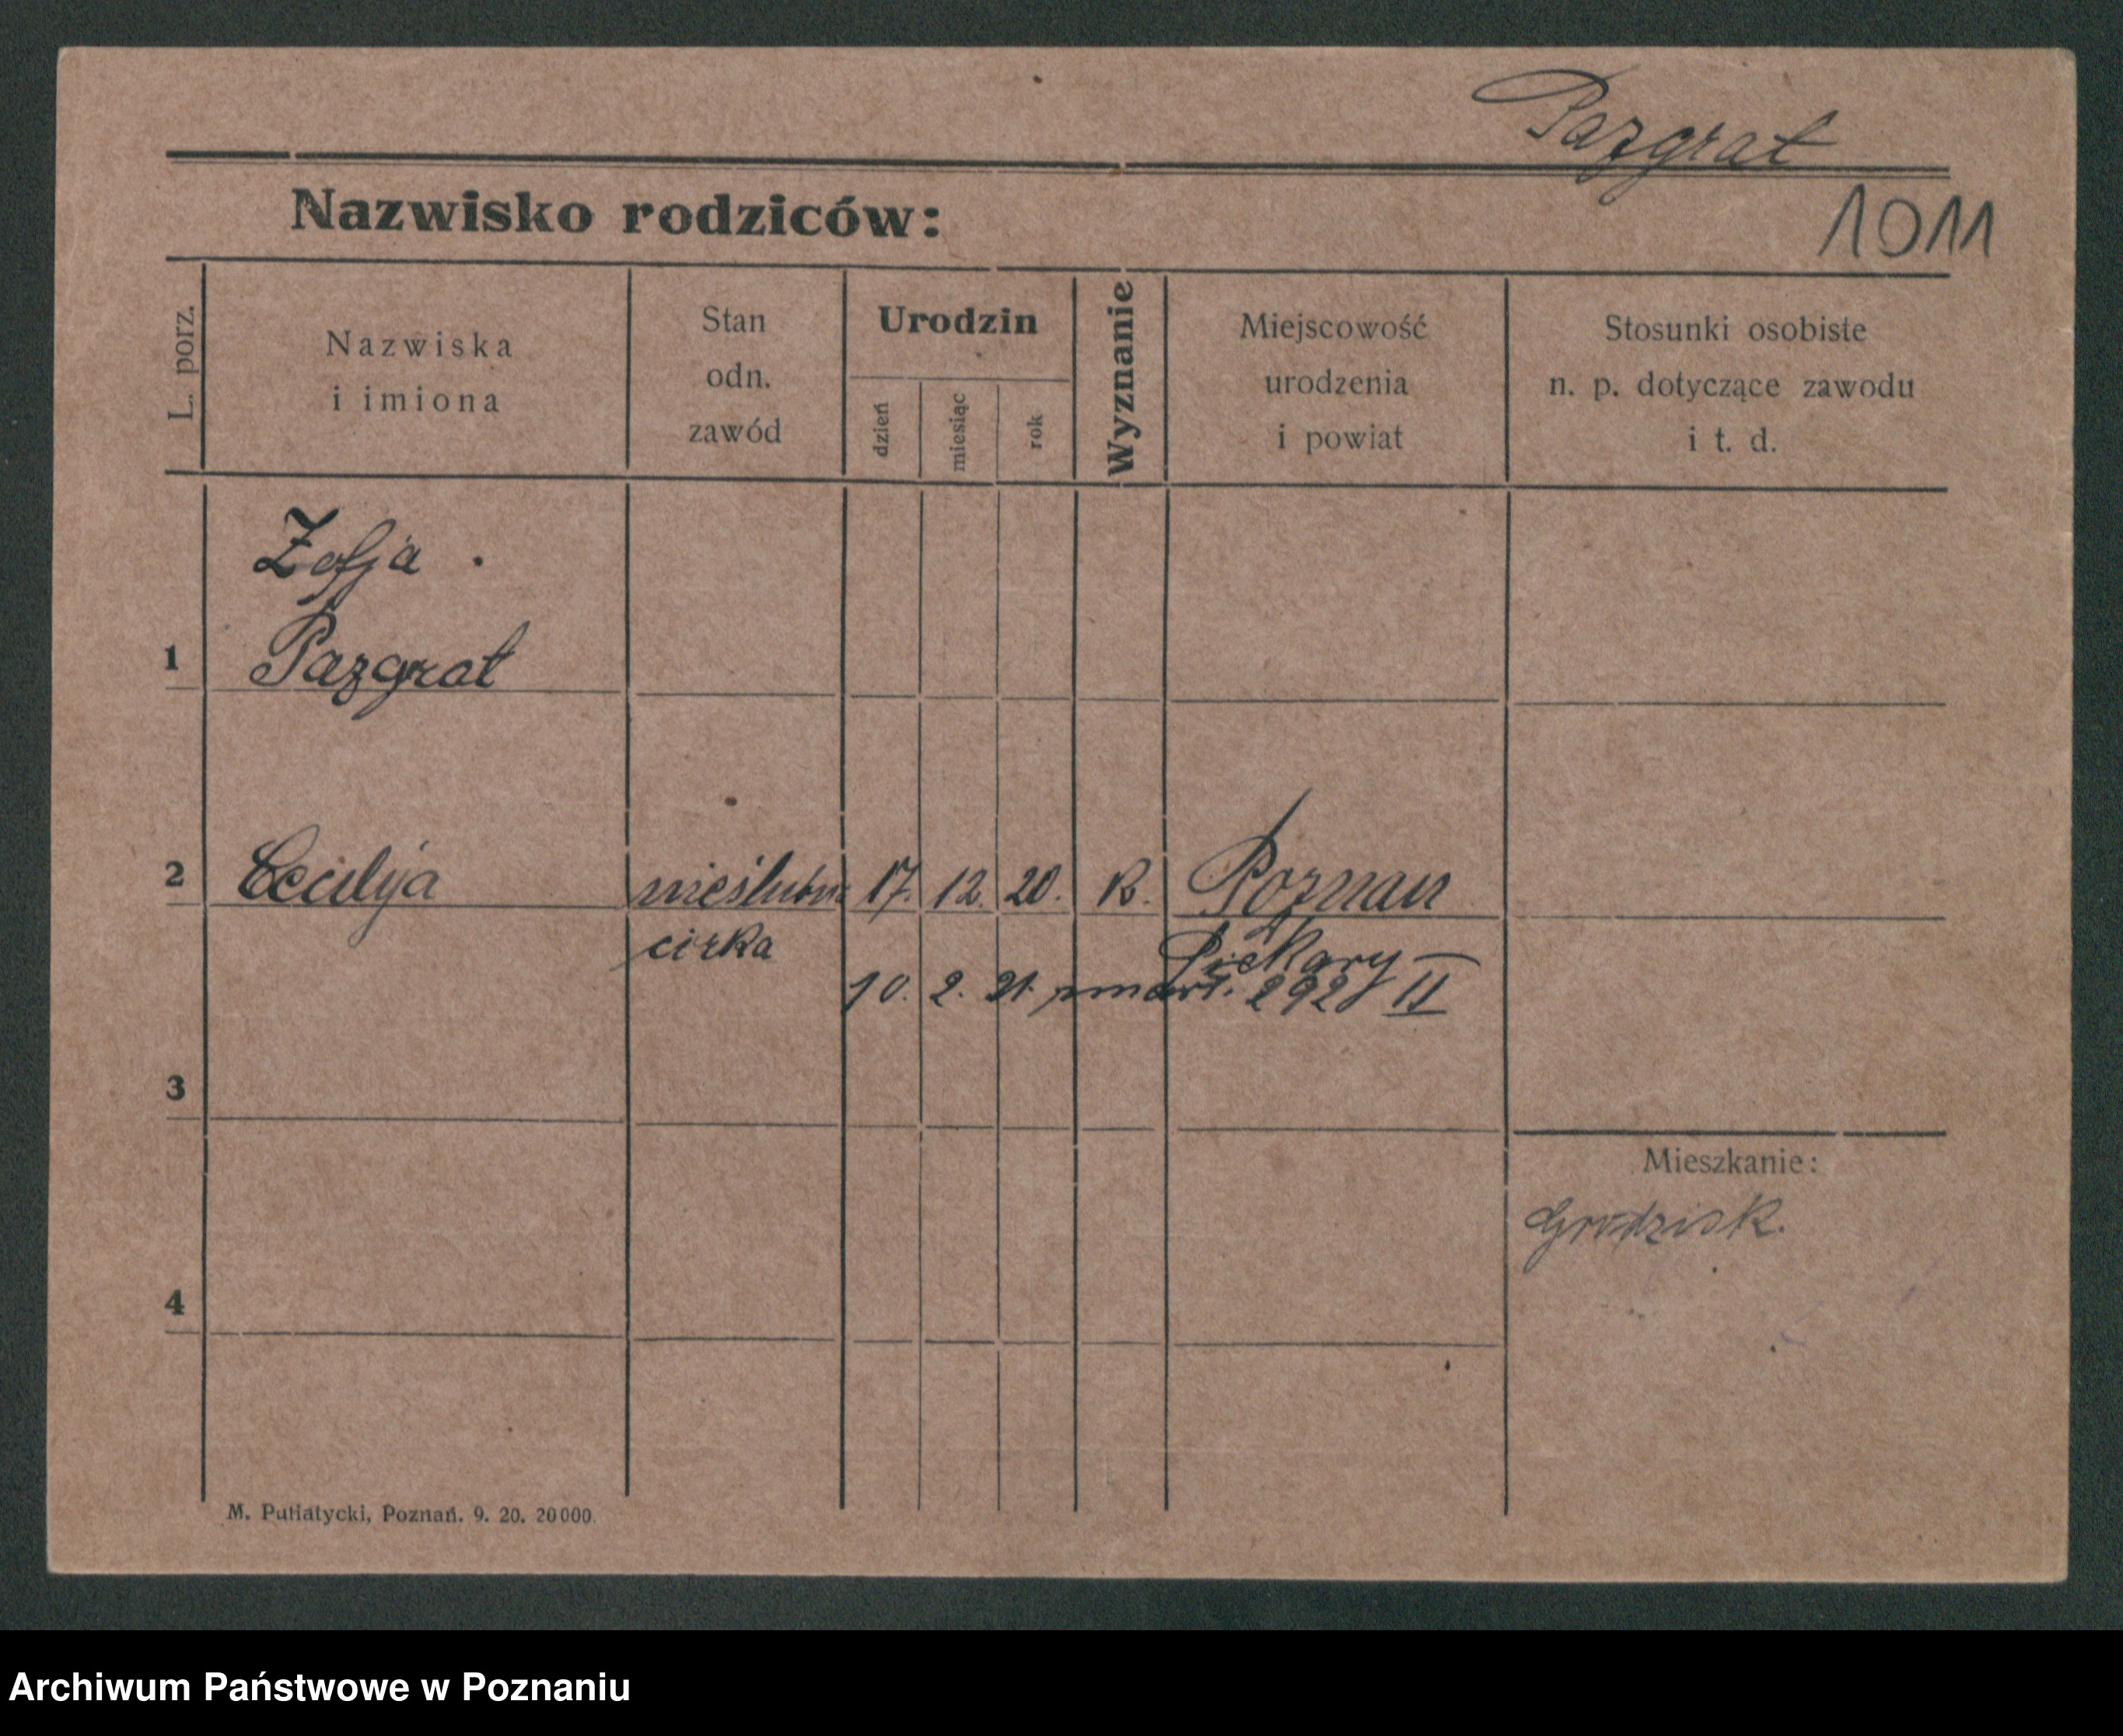 Pazgrat
1011
Nazwisko rodziców:
L. porz.
Nazwiska
i imiona
Stan
odn.
zawód
Urodzin
dzień
miesiąc
rok
Wyznanie
Miejscowość
urodzenia
i powiat
Stosunki osobiste
n. p. dotyczące zawodu
i t. d.
Zofja
1 Pazgrat
2 Cecilija nieślubna 17. 12. 20. R. Poznań
córka Piekary
10. 2. 21. zmarł. 292 II
3
Mieszkanie:
Grodzisk.
4
M. Putiatycki, Poznań. 9. 20. 20000.
Archiwum Państwowe w Poznaniu